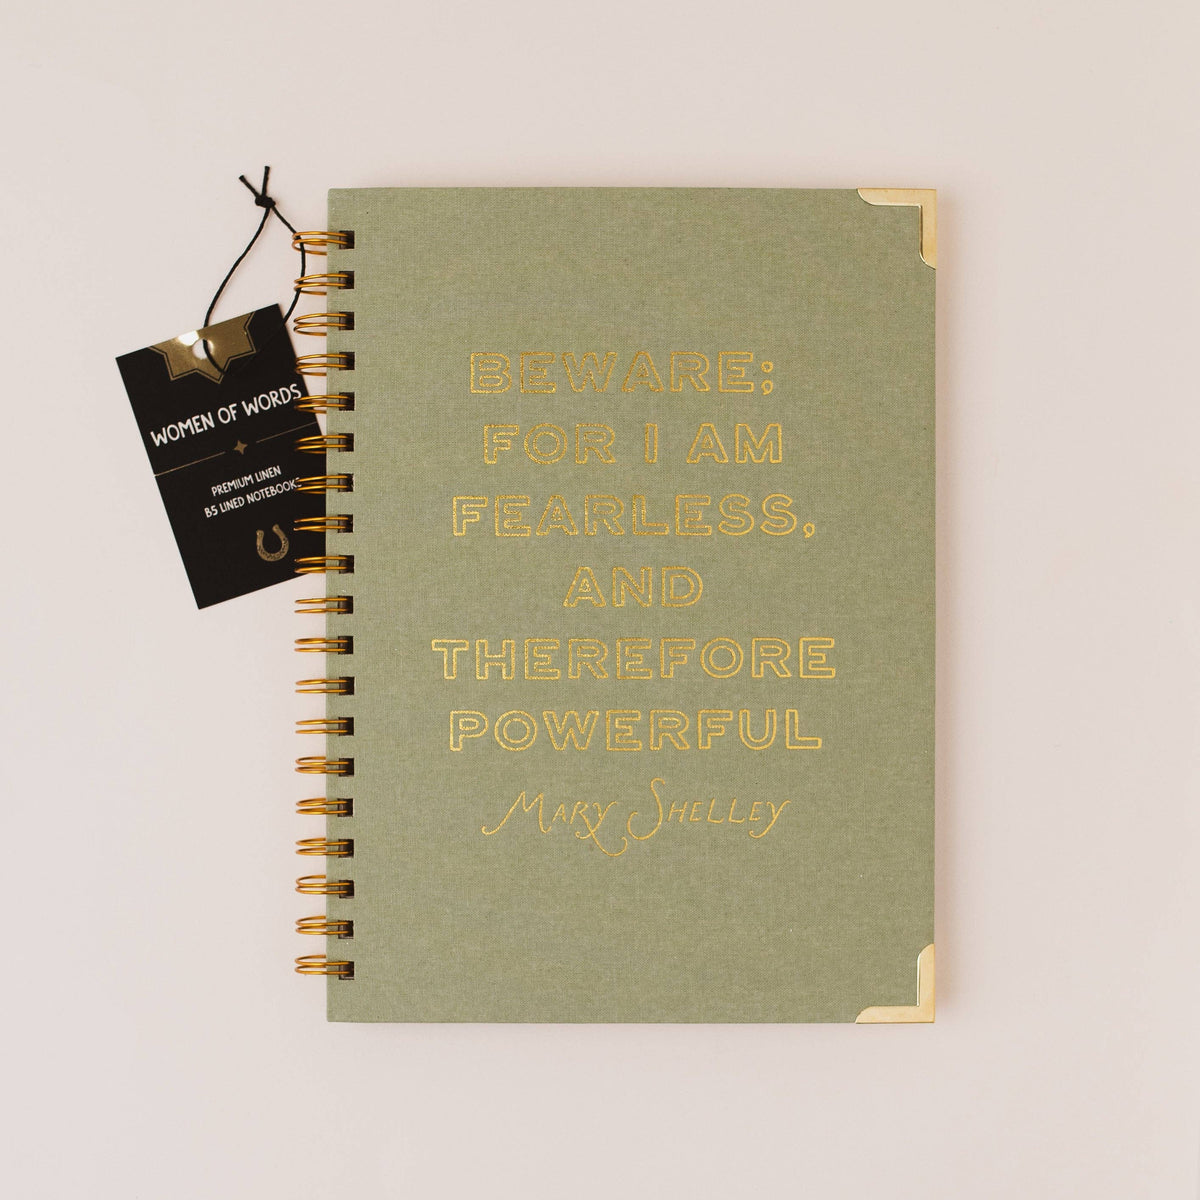 WOMEN OF WORDS
PREMIUM LINEN
B5 LINED NOTEBOOKS
BEWARE;
FOR I AM
FEARLESS,
AND
THEREFORE
POWERFUL
MARY SHELLEY